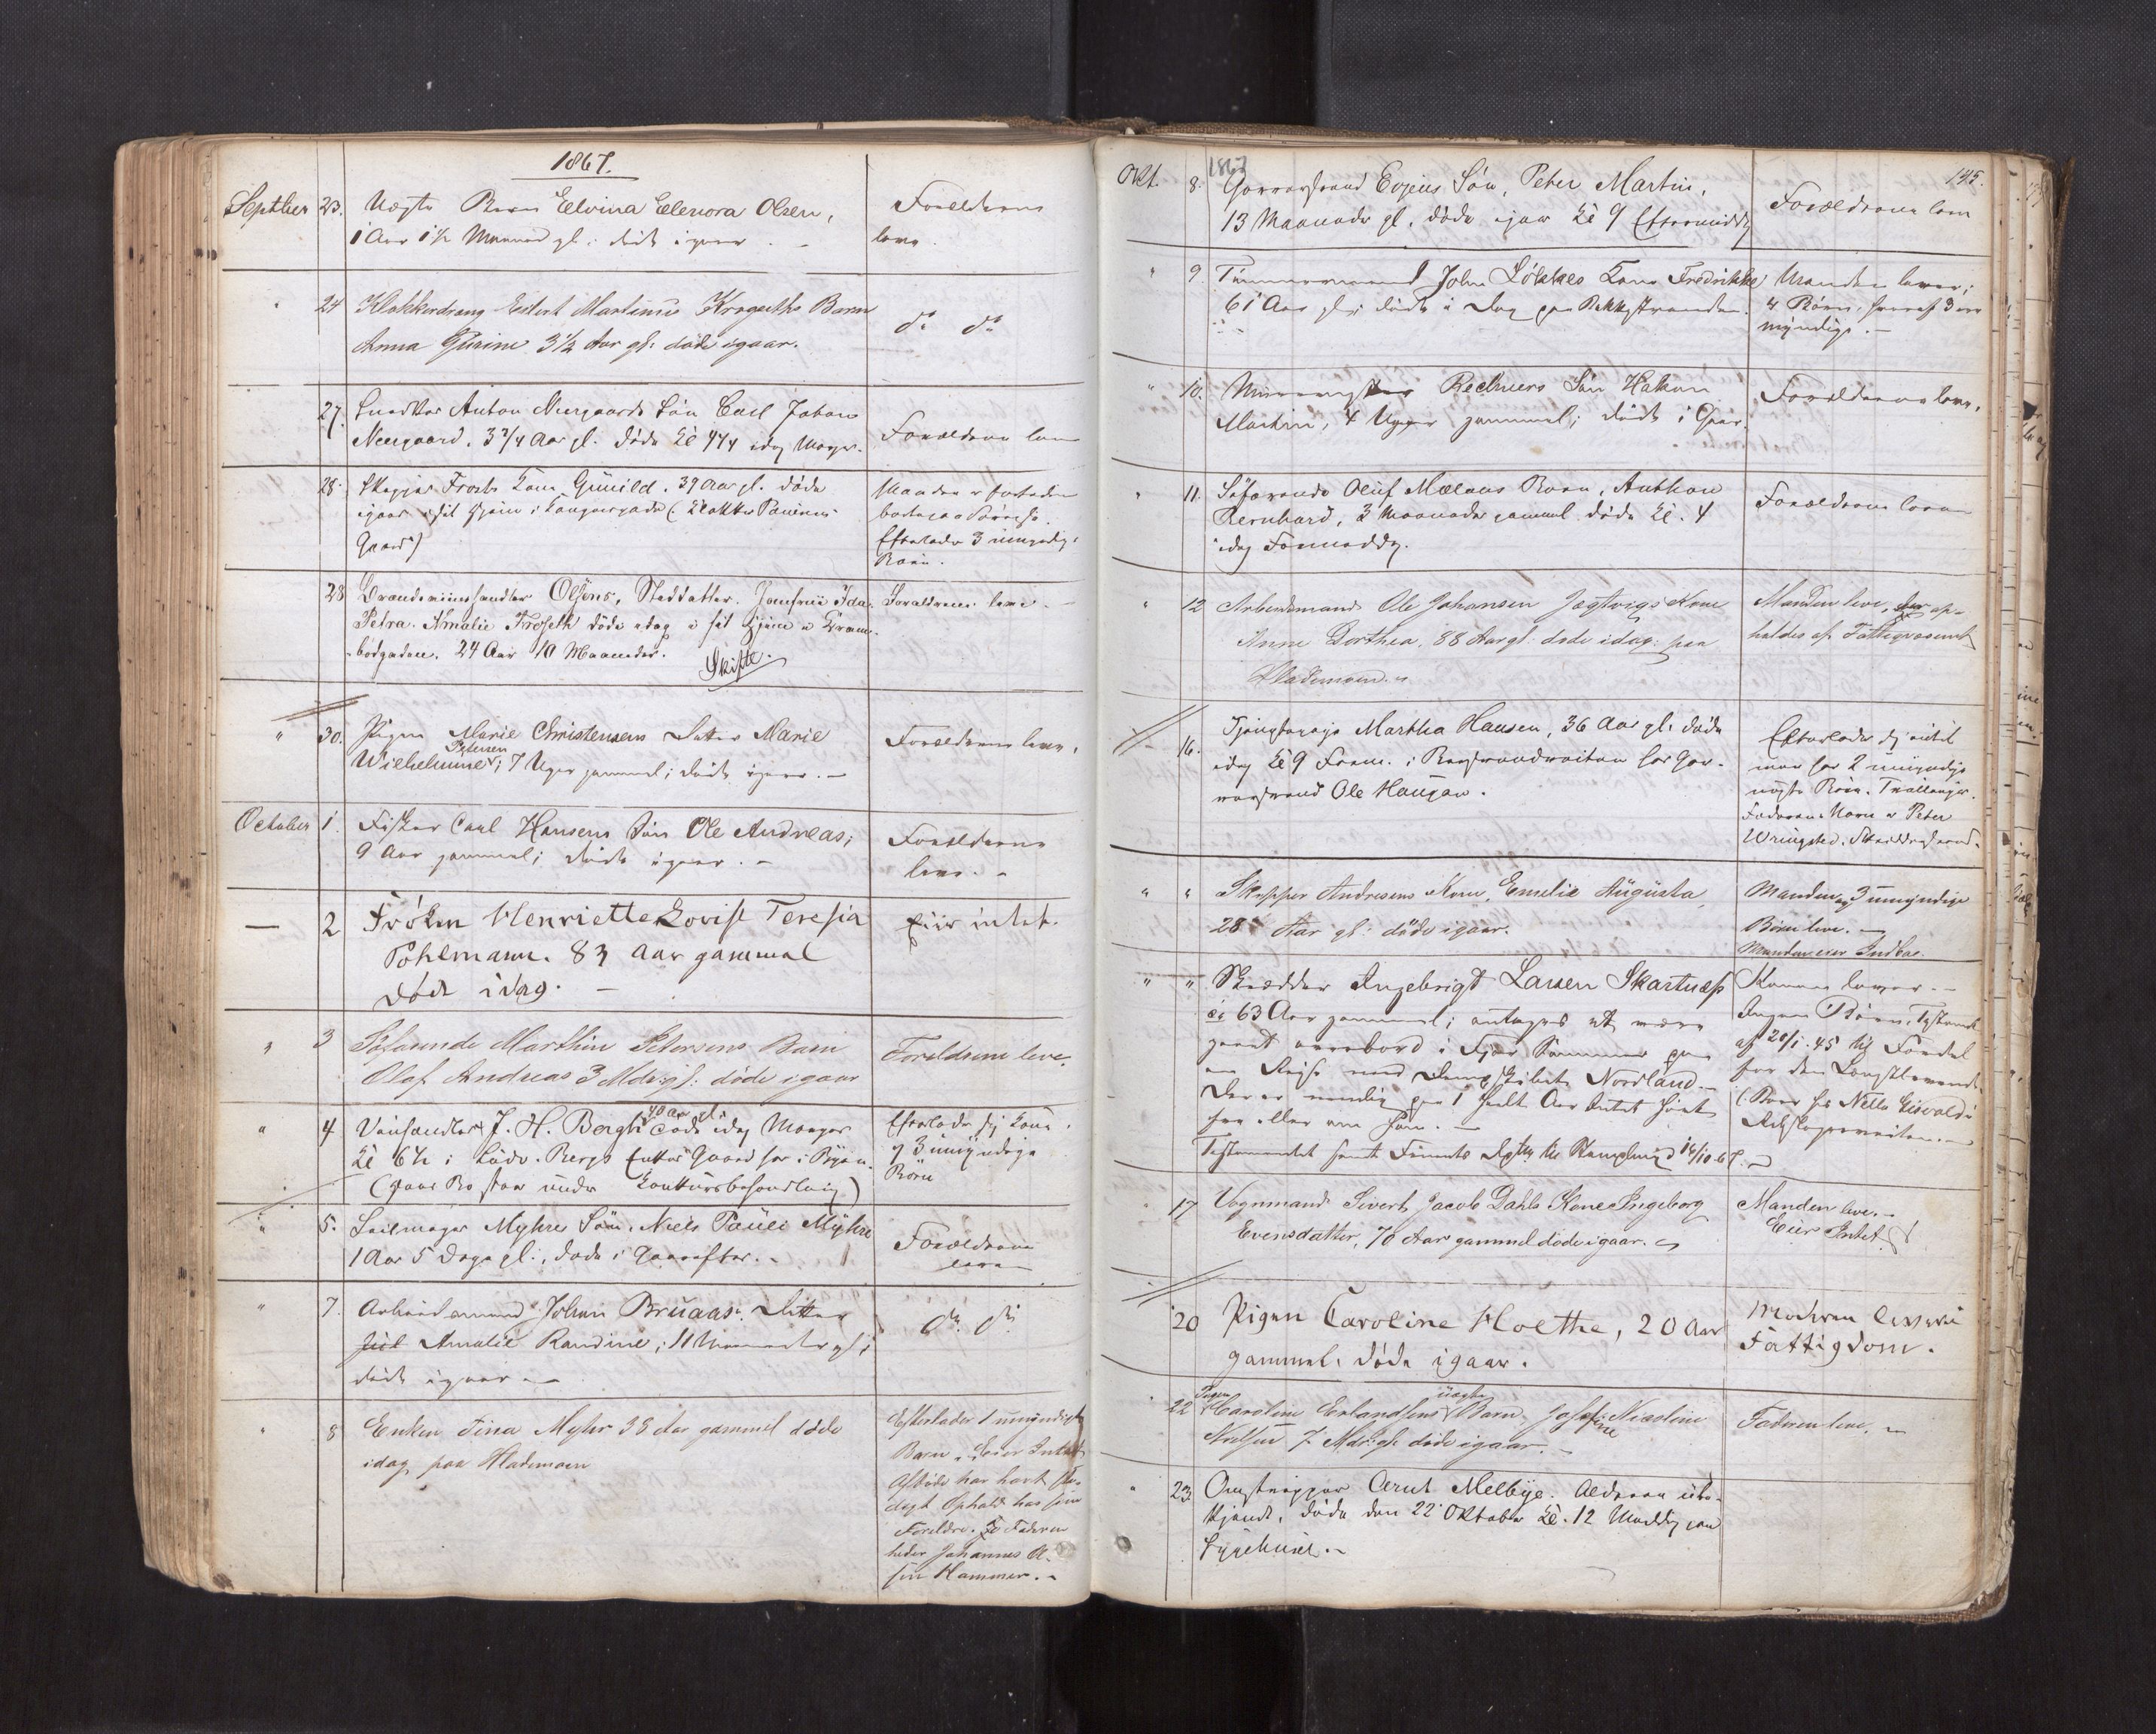 1867.
Septber 23. Uægte Barn Elvina Elenora Olsen,
1 Aar 1½ Maaned gl: døde igaar.
Forældrene
leve.
" 24 Klokkerdreng Eilert Martinus Krogseths Barn
Anna Gurine 3½ Aar gl: døde igaar.
do do
27. Snedker Anton Neergaards Søn Carl Johan
Neergaard, 3¾ Aar gl. døde Kl 4¼ idag Morges.
Forældrene leve
28. Skipper Frosts Kone Gunild, 39 Aar gl. døde
igaar i sit Hjem i (Klokker
Gaard)
Manden er for tiden
bortreist
Efterlader 3 umyndige
Børn.
28 Brændeviinshandler Olsens, Steddatter, Jomfrue Ida
Petra Amalie Froseth døde idag i sit Hjem i Kram-
bodgaden. 24 Aar 10 Maaneder.
Skifte.
Forældrene leve.
" 30. Pigen Marie Christensens Datter Marie
Petersen
Wilhelmine; 7 Uger gammel; døde igaar.
Forældrene leve.
October 1. Fisker Carl Hansens Søn Ole Andreas;
9 Aar gammel; døde igaar.
Forældrene
leve.
— 2 Frøken Henriette Lovise Teresia
Pohlmann. 83 Aar gammel
døde idag.
Eier intet.
" 3 Søfarende Marthin Petersens Barn
Olaf Andreas 3 Mdr: gl: døde igaar
Forældrene leve.
" 4 Viinhandler J. H. Bergh 40 Aar gl. døde idag Morges
Kl 6½ i Ludv. Bergs Enkes Gaard her i Byen.
(Hans Bo staar under Konkursbehandling)
Efterlader sig Kone
og 3 umyndige
Børn
" 5. Seilmager Myhres Søn, Niels Pauli Myhre
1 Aar 5 Dage gl., døde i Gaaraftes.
Forældrene
leve
" 7. Arbeidsmand Johan Bruaas Datter
Amalie Randine; 11 Maaneder gl;
døde igaar
do do
" 8 Enken Fina Myhr 33 Aar gammel døde
idag paa Hlademoen
Efterlader 1 umyndigt
Barn, Eier Intet
Afdøde har havt sta-
digt Ophold hos sine
Forældre. Faderen
heder Johannes Ol-
sen Hammer.
Okt. 1867 145.
8. Garversvend Evjens Søn, Peter Martin,
13 Maaneder gl. døde igaar Kl 9 Eftermiddg
Forældrene leve
" 9 Tømmermand John Løkkes Kone Fredrikke
61 Aar gl; døde i Dag paa Bakkestranden.
Manden lever;
4 Børn, hvoraf 3 ere
myndige.
" 10. Murermester Bechners Søn Hakon
Martin, 4 Uger gammel; døde i Gaar.
Forældrene leve.
" 11. Søfarende Oluf Mælans Barn, Anthon
Bernhard, 3 Maaneder gammel døde Kl. 4
idag Formiddg.
Forældrene leve
" 12 Arbeidsmand Ole Johansen Jegtvigs Kone
Anne Dorthea, 88 Aar gl: døde idag paa
Hlademoen.
Manden leve, op-
holdes af Fattigvæsenet
16. Tjenestepige Martha Hansen, 36 Aar gl. døde
idag Kl 9 Form. i hos Gar-
versvend Ole Haugan.
Efterlader sig intet
men har 2 umyndige
uægte Børn. Tvillinger.
Faderens Navn er Peter
Wringsted.
" " Skipper Andresens Kone, Emelie Augusta,
28 Aar gl: døde igaar.
Manden og 3 umyndige
Børn leve.
" " Skrædder Ingebrigt Larsen Skartnæs
63 Aar gammel; antages at være
gaaet overbord i Fjor Sommer paa
en Reise med Dampskibet Nordland.
Der er nemlig paa 1 heelt Aar Intet hørt
fra eller om ham.
Konen lever.
Ingen Børn. Testament
af 20/1. 45 til Fordel
for den Længstlevende.
" 17 Vognmand Sivert Jacob Dahls Kone Ingeborg
Evensdatter, 70 Aar gammel døde igaar.
Manden leve.
Eier Intet.
20 Pigen Caroline Holthe, 20 Aar
gammel. døde igaar.
Moderen lever i
Fattigdom.
" 22 Pigen Karoline Erlandsens uægte Barn Josefine Nicoline
7 Mdr: gl: døde igaar.
Faderen leve.
" 23 Omstreiper Arnt Melbye. Alderen ube-
kjendt, døde den 22 Oktober Kl. 12 Middg paa
Sygehuset.